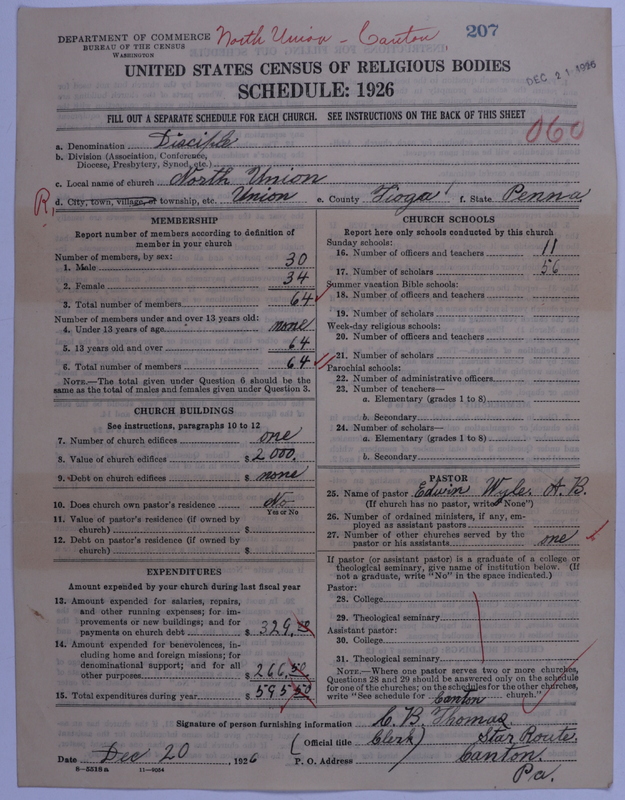 DEPARTMENT OF COMMERCE
BUREAU OF THE CENSUS
WASHINGTON
North Union - Canton
207
DEC 21 1926
UNITED STATES CENSUS OF RELIGIOUS BODIES
SCHEDULE: 1926
FILL OUT A SEPARATE SCHEDULE FOR EACH CHURCH. SEE INSTRUCTIONS ON THE BACK OF THIS SHEET
060
a. Denomination Disciple
b. Division (Association, Conference, Diocese, Presbytery, Synod, etc.)
c. Local name of church North Union
R, d. City, town, village, or township, etc. Union e. County Tioga f. State Penna
MEMBERSHIP
Report number of members according to definition of
member in your church
Number of members, by sex:
1. Male 30
2. Female 34
3. Total number of members 64
Number of members under and over 13 years old:
4. Under 13 years of age none
5. 13 years old and over 64
6. Total number of members 64
NOTE.—The total given under Question 6 should be
same as the total of males and females given under Question 3.
CHURCH BUILDINGS
See instructions, paragraphs 10 to 12
7. Number of church edifices one
8. Value of church edifices $ 2000.
9. Debt on church edifices $ none
10. Does church own pastor's residence No
Yes or No
11. Value of pastor's residence (if owned by
church) $
12. Debt on pastor's residence (if owned by
church) $
EXPENDITURES
Amount expended by your church during last fiscal year
13. Amount expended for salaries, repairs,
and other running expenses; for im-
provements or new buildings; and for
payments on church debt $ 329.
14. Amount expended for benevolences, in-
cluding home and foreign missions; for
denominational support; and for all
other purposes $ 266.50
15. Total expenditures during year $ 595.50
CHURCH SCHOOLS
Report here only schools conducted by this church
Sunday schools:
16. Number of officers and teachers 11
17. Number of scholars 56
Summer vacation Bible schools:
18. Number of officers and teachers
19. Number of scholars
Week-day religious schools:
20. Number of officers and teachers
21. Number of scholars
Parochial schools:
22. Number of administrative officers
23. Number of teachers—
a. Elementary (grades 1 to 8)
b. Secondary
24. Number of scholars—
a. Elementary (grades 1 to 8)
b. Secondary
PASTOR
25. Name of pastor Edwin Wyle. A.B.
(If church has no pastor, write "None")
26. Number of ordained ministers, if any, em-
ployed as assistant pastors
27. Number of other churches served by the
pastor or his assistants one
If pastor (or assistant pastor) is a graduate of a college or
theological seminary, give name of institution below. (If
not a graduate, write "No" in the space indicated.)
Pastor:
28. College
29. Theological seminary
Assistant pastor:
30. College
31. Theological seminary
NOTE.—Where one pastor serves two or more churches,
Questions 28 and 29 should be answered only on the schedule
for one of the churches; on the schedules for the other churches,
write "See schedule for Canton church."
Signature of person furnishing information C. B. Thomas
(Official title Clerk) Star Route.
Date Dec 20, 1926 P. O. Address Canton.
Pa.
8-5318a 11-9054